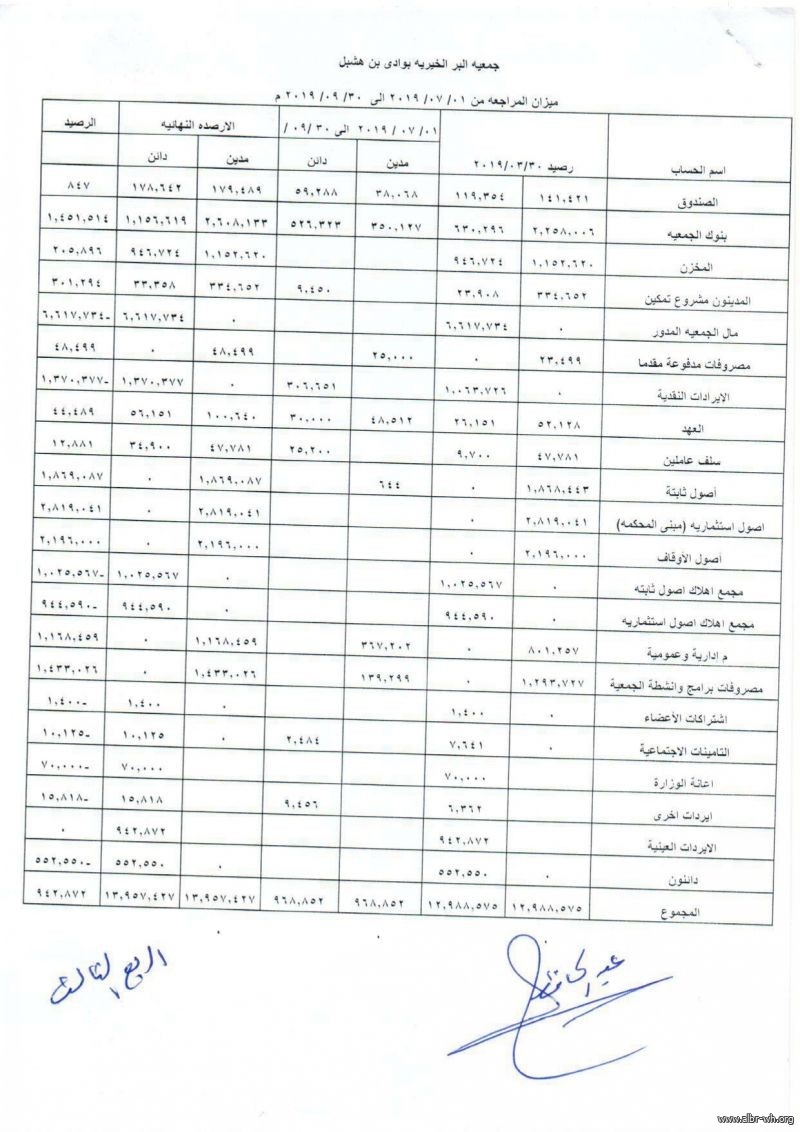 جمعيه البر الخيريه بوادى بن هشبل
ميزان المراجعه من ٠١/ ٠٧/ ٢٠١٩ الى ٣٠/ ٠٩/ ٢٠١٩ م
اسم الحساب رصيد ٢٠١٩/٠٣/٣٠ ٠١/ ٠٧/ ٢٠١٩ الى ٣٠/ ٠٩/ الارصده النهائيه الرصيد
مدين دائن مدين دائن
الصندوق ١٤١,٤٢١ ١١٩,٣٥٤ ٣٨,٠٦٨ ٥٩,٢٨٨ ١٧٩,٤٨٩ ١٧٨,٦٤٢ ٨٤٧
بنوك الجمعيه ٢,٢٥٨,٠٠٦ ٦٣٠,٢٩٦ ٣٥٠,١٢٧ ٥٢٦,٣٢٣ ٢,٦٠٨,١٣٣ ١,١٥٦,٦١٩ ١,٤٥١,٥١٤
المخزن ١,١٥٢,٦٢٠ ٩٤٦,٧٢٤ ١,١٥٢,٦٢٠ ٩٤٦,٧٢٤ ٢٠٥,٨٩٦
المدينون مشروع تمكين ٣٣٤,٦٥٢ ٢٣,٩٠٨ ٩,٤٥٠ ٣٣٤,٦٥٢ ٣٣,٣٥٨ ٣٠١,٢٩٤
مال الجمعيه المدور ٠ ٦,٦١٧,٧٣٤ ٠ ٦,٦١٧,٧٣٤ ٦,٦١٧,٧٣٤-
مصروفات مدفوعة مقدما ٢٣,٤٩٩ ٠ ٢٥,٠٠٠ ٤٨,٤٩٩ ٠ ٤٨,٤٩٩
الايرادات النقدية ٠ ١,٠٦٣,٧٢٦ ٣٠٦,٦٥١ ٠ ١,٣٧٠,٣٧٧ ١,٣٧٠,٣٧٧-
العهد ٥٢,١٢٨ ٢٦,١٥١ ٤٨,٥١٢ ٣٠,٠٠٠ ١٠٠,٦٤٠ ٥٦,١٥١ ٤٤,٤٨٩
سلف عاملين ٤٧,٧٨١ ٩,٧٠٠ ٢٥,٢٠٠ ٤٧,٧٨١ ٣٤,٩٠٠ ١٢,٨٨١
أصول ثابتة ١,٨٦٨,٤٤٣ ٠ ٦٤٤ ١,٨٦٩,٠٨٧ ٠ ١,٨٦٩,٠٨٧
اصول استثماريه (مبنى المحكمه) ٢,٨١٩,٠٤١ ٠ ٢,٨١٩,٠٤١ ٠ ٢,٨١٩,٠٤١
أصول الأوقاف ٢,١٩٦,٠٠٠ ٠ ٢,١٩٦,٠٠٠ ٠ ٢,١٩٦,٠٠٠
مجمع اهلاك اصول ثابته ٠ ١,٠٢٥,٥٦٧ ٠ ١,٠٢٥,٥٦٧ ١,٠٢٥,٥٦٧-
مجمع اهلاك اصول استثماريه ٠ ٩٤٤,٥٩٠ ٠ ٩٤٤,٥٩٠ ٩٤٤,٥٩٠-
م إدارية وعمومية ٨٠١,٢٥٧ ٠ ٣٦٧,٢٠٢ ١,١٦٨,٤٥٩ ٠ ١,١٦٨,٤٥٩
مصروفات برامج وانشطة الجمعية ١,٢٩٣,٧٢٧ ٠ ١٣٩,٢٩٩ ١,٤٣٣,٠٢٦ ٠ ١,٤٣٣,٠٢٦
اشتراكات الأعضاء ٠ ١,٤٠٠ ٠ ١,٤٠٠ ١,٤٠٠-
التامينات الاجتماعية ٠ ٧,٦٤١ ٢,٤٨٤ ٠ ١٠,١٢٥ ١٠,١٢٥-
اعانة الوزارة ٧٠,٠٠٠ ٧٠,٠٠٠ ٧٠,٠٠٠-
ايردات اخرى ٦,٣٦٢ ٩,٤٥٦ ١٥,٨١٨ ١٥,٨١٨-
الايردات العينية ٩٤٢,٨٧٢ ٩٤٢,٨٧٢ ٠
دائنون ٠ ٥٥٢,٥٥٠ ٠ ٥٥٢,٥٥٠ ٥٥٢,٥٥٠-
المجموع ١٢,٩٨٨,٥٧٥ ١٢,٩٨٨,٥٧٥ ٩٦٨,٨٥٢ ٩٦٨,٨٥٢ ١٣,٩٥٧,٤٢٧ ١٣,٩٥٧,٤٢٧ ٩٤٢,٨٧٢
الربع الثالث
www.albr-wh.org